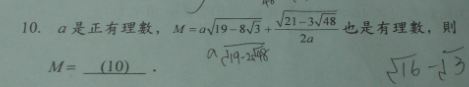 10. a是正有理數，M=a√(19-8√3)+√(21-3√48)/(2a) 也是有理數，則
M= (10) .
a√(19-2√48)
√16-√3